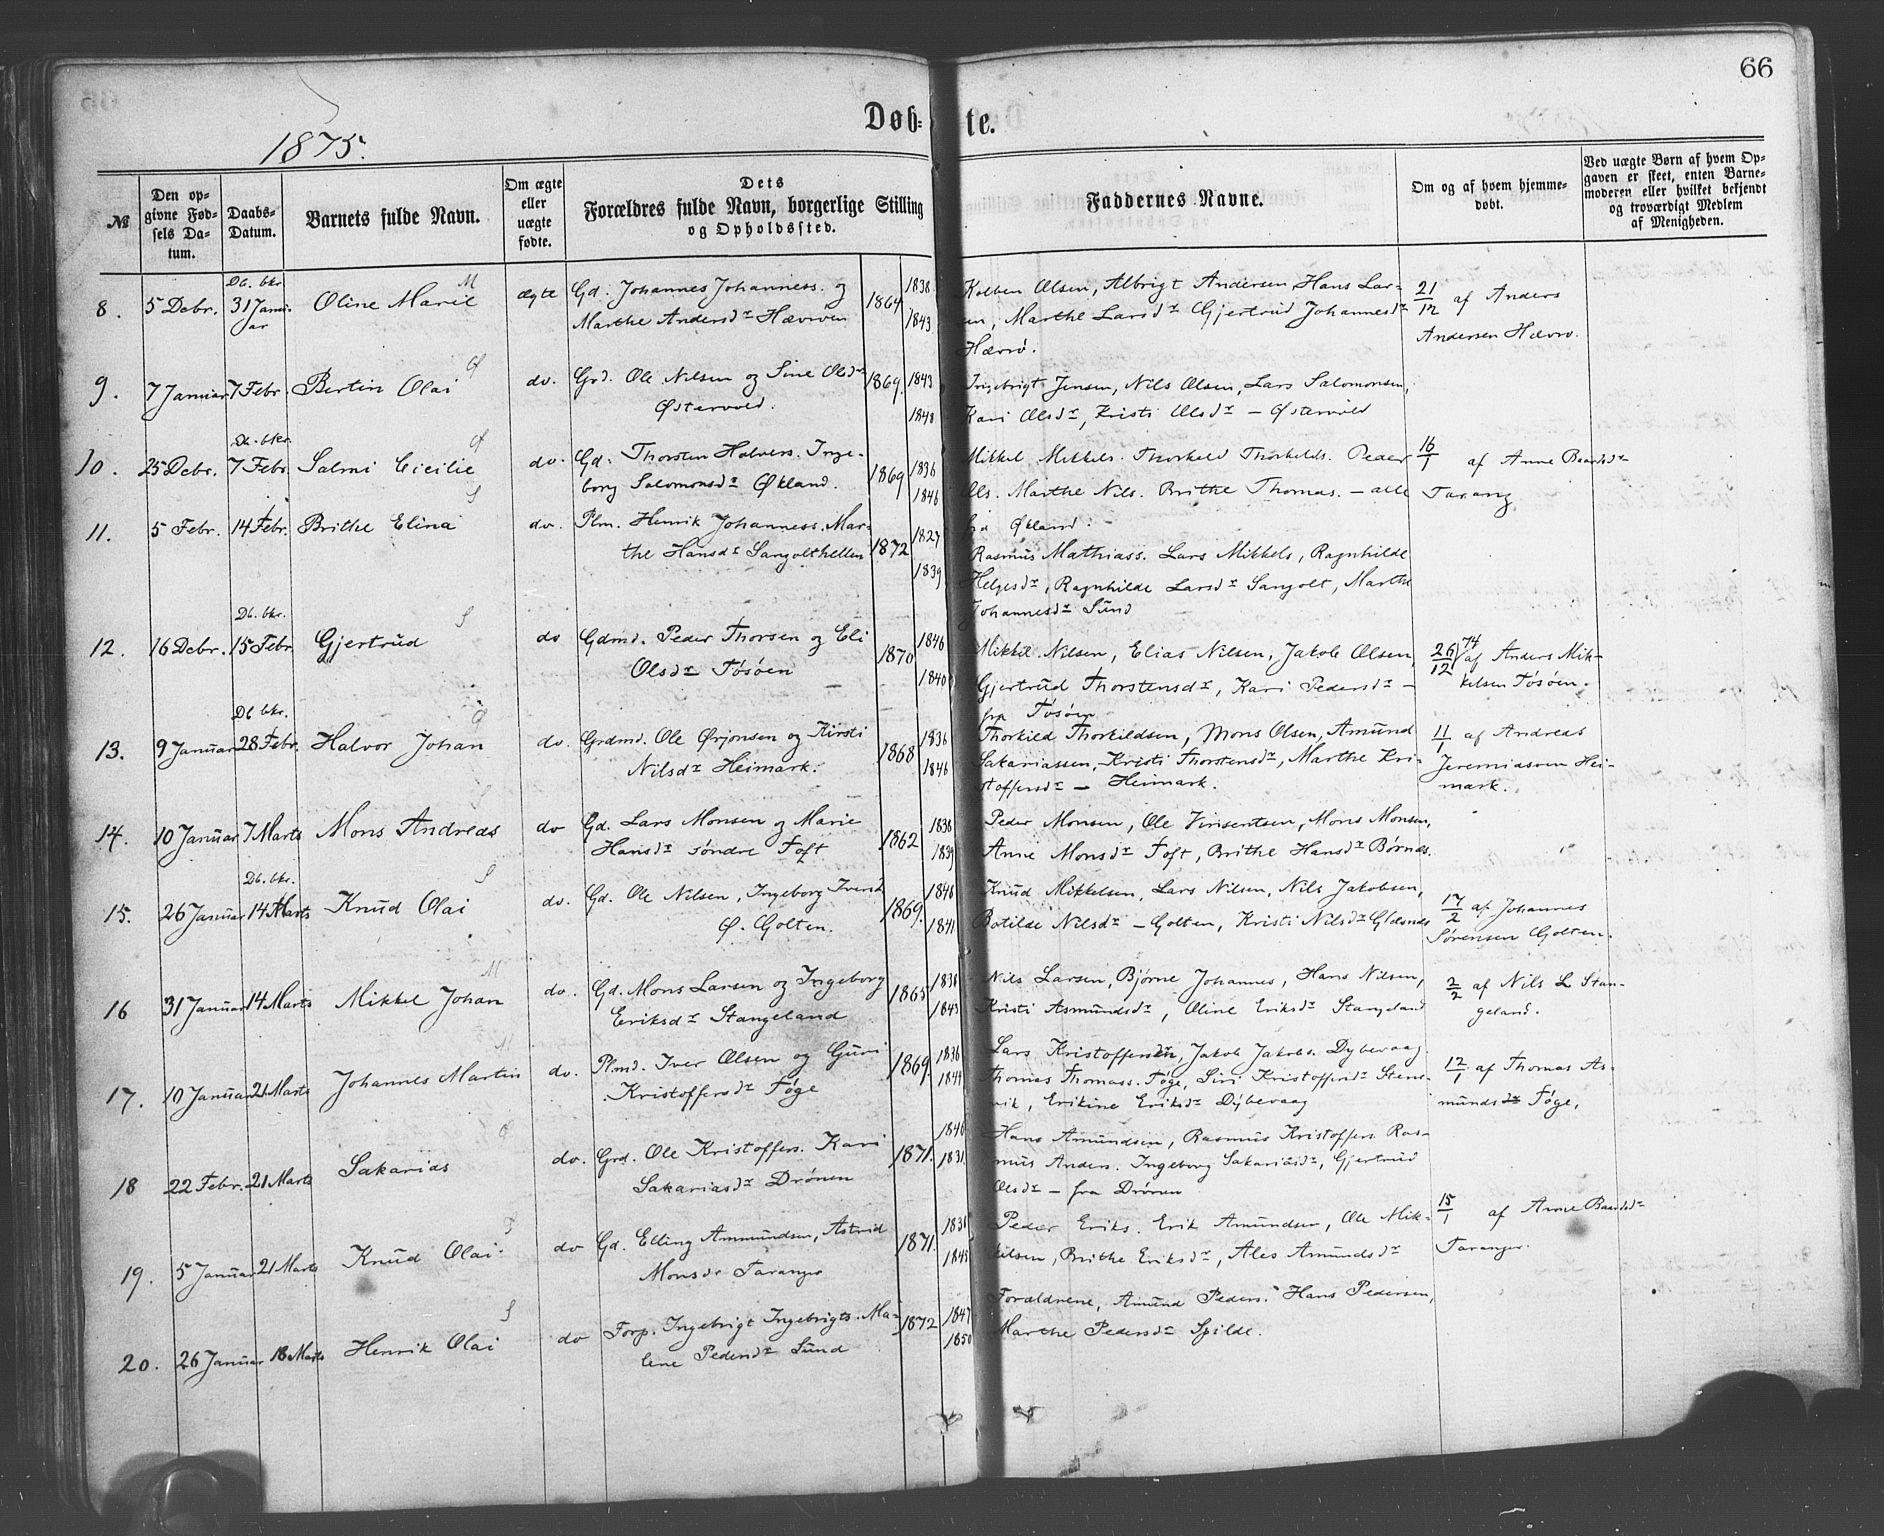 66
Døb- te.
1875.
№
Den op-
givne Fød-
sels Da-
tum.
Daabs-
Datum.
Barnets fulde Navn.
Om ægte
eller
uægte
fødte.
Dets
Forældres fulde Navn, borgerlige Stilling
og Opholdssted.
Faddernes Navne.
Om og af hvem hjemme-
døbt.
Ved uægte Børn af hvem Op-
gaven er skeet, enten Barne-
moderen eller hvilket bekjendt
og troværdigt Medlem
af Menigheden.
8. 5 Decbr. Db. bkr. 31 Janu-
ar
Oline Marie M
ægte
Gd. Johannes Johanness. og
Marthe Andersdr Hævrøen
1864 1838
1843
Kolben Olsen, Albrigt Andersen Hans Lar-
sen, Marthe Larsdr Gjertrud Johannesdr
Hævrø.
21/12 af Anders
Andersen Hævrø.
9. 7 Januar 7 Febr. Bertin Olai Ø
do. Grd. Ole Nilsen og Sine Olsdr
Østervold.
1869. 1843
1848
Ingebrigt Jensen, Nils Olsen, Lars Salomonsen,
Kari Olsdr, Kristi Olsdr - Østervold
10. 25 Decbr. Db. bkr. 7 Febr. Salmi Cicilie Ø
do. Gd. Thorsten Halvors. Inge-
borg Salomonsdr Økland.
1869 1836
1846
Mikkel Mikkels. Thorkeld Thorkelds. Peder
Ols. Marthe Nils. Brithe Thomas. - alle
fra Økland.
16/1 af Anne Baardsdr
Tarang
11. 5 Febr. 14 Febr. Brithe Elina S
do. Plm. Henrik Johanness. Mar-
the Hansdr Sangolthellen
1872 1827
1839
Rasmus Mathiass. Lars Mikkels, Ragnhilde
Helgesdr, Ragnhilde Larsdr Sangolt, Marthe
Johannesdr Sund
12. 16 Decbr. Db. bkr. 15 Febr. Gjertrud S
do Gdmd. Peder Thorsen og Eli
Olsdr Tøsøen
1870 1846
1840
Mikkel Nilsen, Elias Nilsen, Jakob Olsen,
Gjertrud Thorstensdr, Kari Pedersdr -
fra Tøsøen
26/12 74 af Anders Mik-
kelsen Tøsøen.
13. 9 Januar Db bkr. 28 Febr. Halvor Johan Ø
do. Grdmd. Ole Ørjansen og Kirsti
Nilsdr Heimark.
1868 1836
1846
Thorkild Thorkildsen, Mons Olsen, Amund
Sakariassen, Kristi Thorstensdr, Marthe Kri-
stoffersdr - Heimark.
11/1 af Andreas
Jeremiassen Hei-
mark.
14. 10 Januar 7 Marts Mons Andreas S
do Gd. Lars Monsen og Marie
Hansdr søndre Toft
1862 1838
1839
Peder Monsen, Ole Vinsentsen, Mons Monsen,
Anne Monsdr Toft, Brithe Hansdr Børnes.
15. 26 Januar Db. bkr. 14 Marts Knud Olai S
do. Gd. Ole Nilsen, Ingeborg Iversd
Ø. Golten.
1869. 1846
1841
Knud Mikkelsen, Lars Nilsen, Nils Jakobsen,
Botilde Nilsdr - Golten, Kristi Nilsdr Glesnes
17/2 af Johannes
Sørensen Golten.
16 31 Januar 14 Marts Mikkel Johan M
do. Gd. Mons Larsen og Ingeborg
Eriksdr Stangeland
1865 1838
1843
Nils Larsen, Bjørne Johannes, Hans Nilsen,
Kristi Asmundsdr, Oline Eriksdr Stangeland
2/2 af Nils L Stan-
geland.
17. 10 Januar 21 Marts Johannes Martin M
do. Plmd. Iver Olsen og Guri
Kristoffersdr Føge
1869. 1836
1844
Lars Kristoffersen, Jakob Jakobs. Dybevaag
Thomas Thomass. Føge, Siri Kristoffersdr Sten-
vik, Erikine Eriksdr Dybevaag
12/1 af Thomas As-
munds Føge,
18 22 Febr. 21 Marts Sakarias Ø
do. Grd. Ole Kristoffers. Kari
Sakariasdr Drønen
1871. 1846
1831
Hans Amundsen, Rasmus Kristoffers. Ras-
mus Anders. Ingeborg Sakariasdr, Gjertrud
Olsdr - fra Drønen
19. 5 Januar 21 Marts Knud Olai. T
do Gd. Elling Ammundsen, Astrid
Monsdr Taranger
1871. 1831
1845
Peder Eriks. Erik Amundsen, Ole Mik-
kelsen, Brithe Eriksdr, Ales Amundsdr
15/1 af Anne Baardsdr
Taranger.
20. 26 Januar 18 Marts Henrik Olai S
do Forp. Ingebrigt Ingebrigts. Ma-
lene Pedersdr Sund
1872 1847
1850
Forældrene, Amund Peders. Hans Pedersen,
Marthe Pedersdr Spilde.